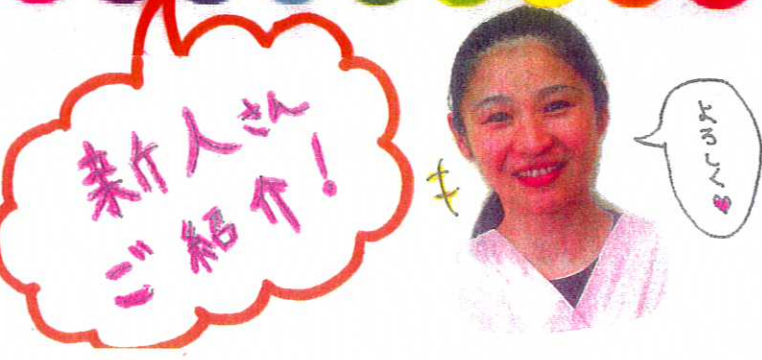 新人さん
ご紹介!
よろしく♥